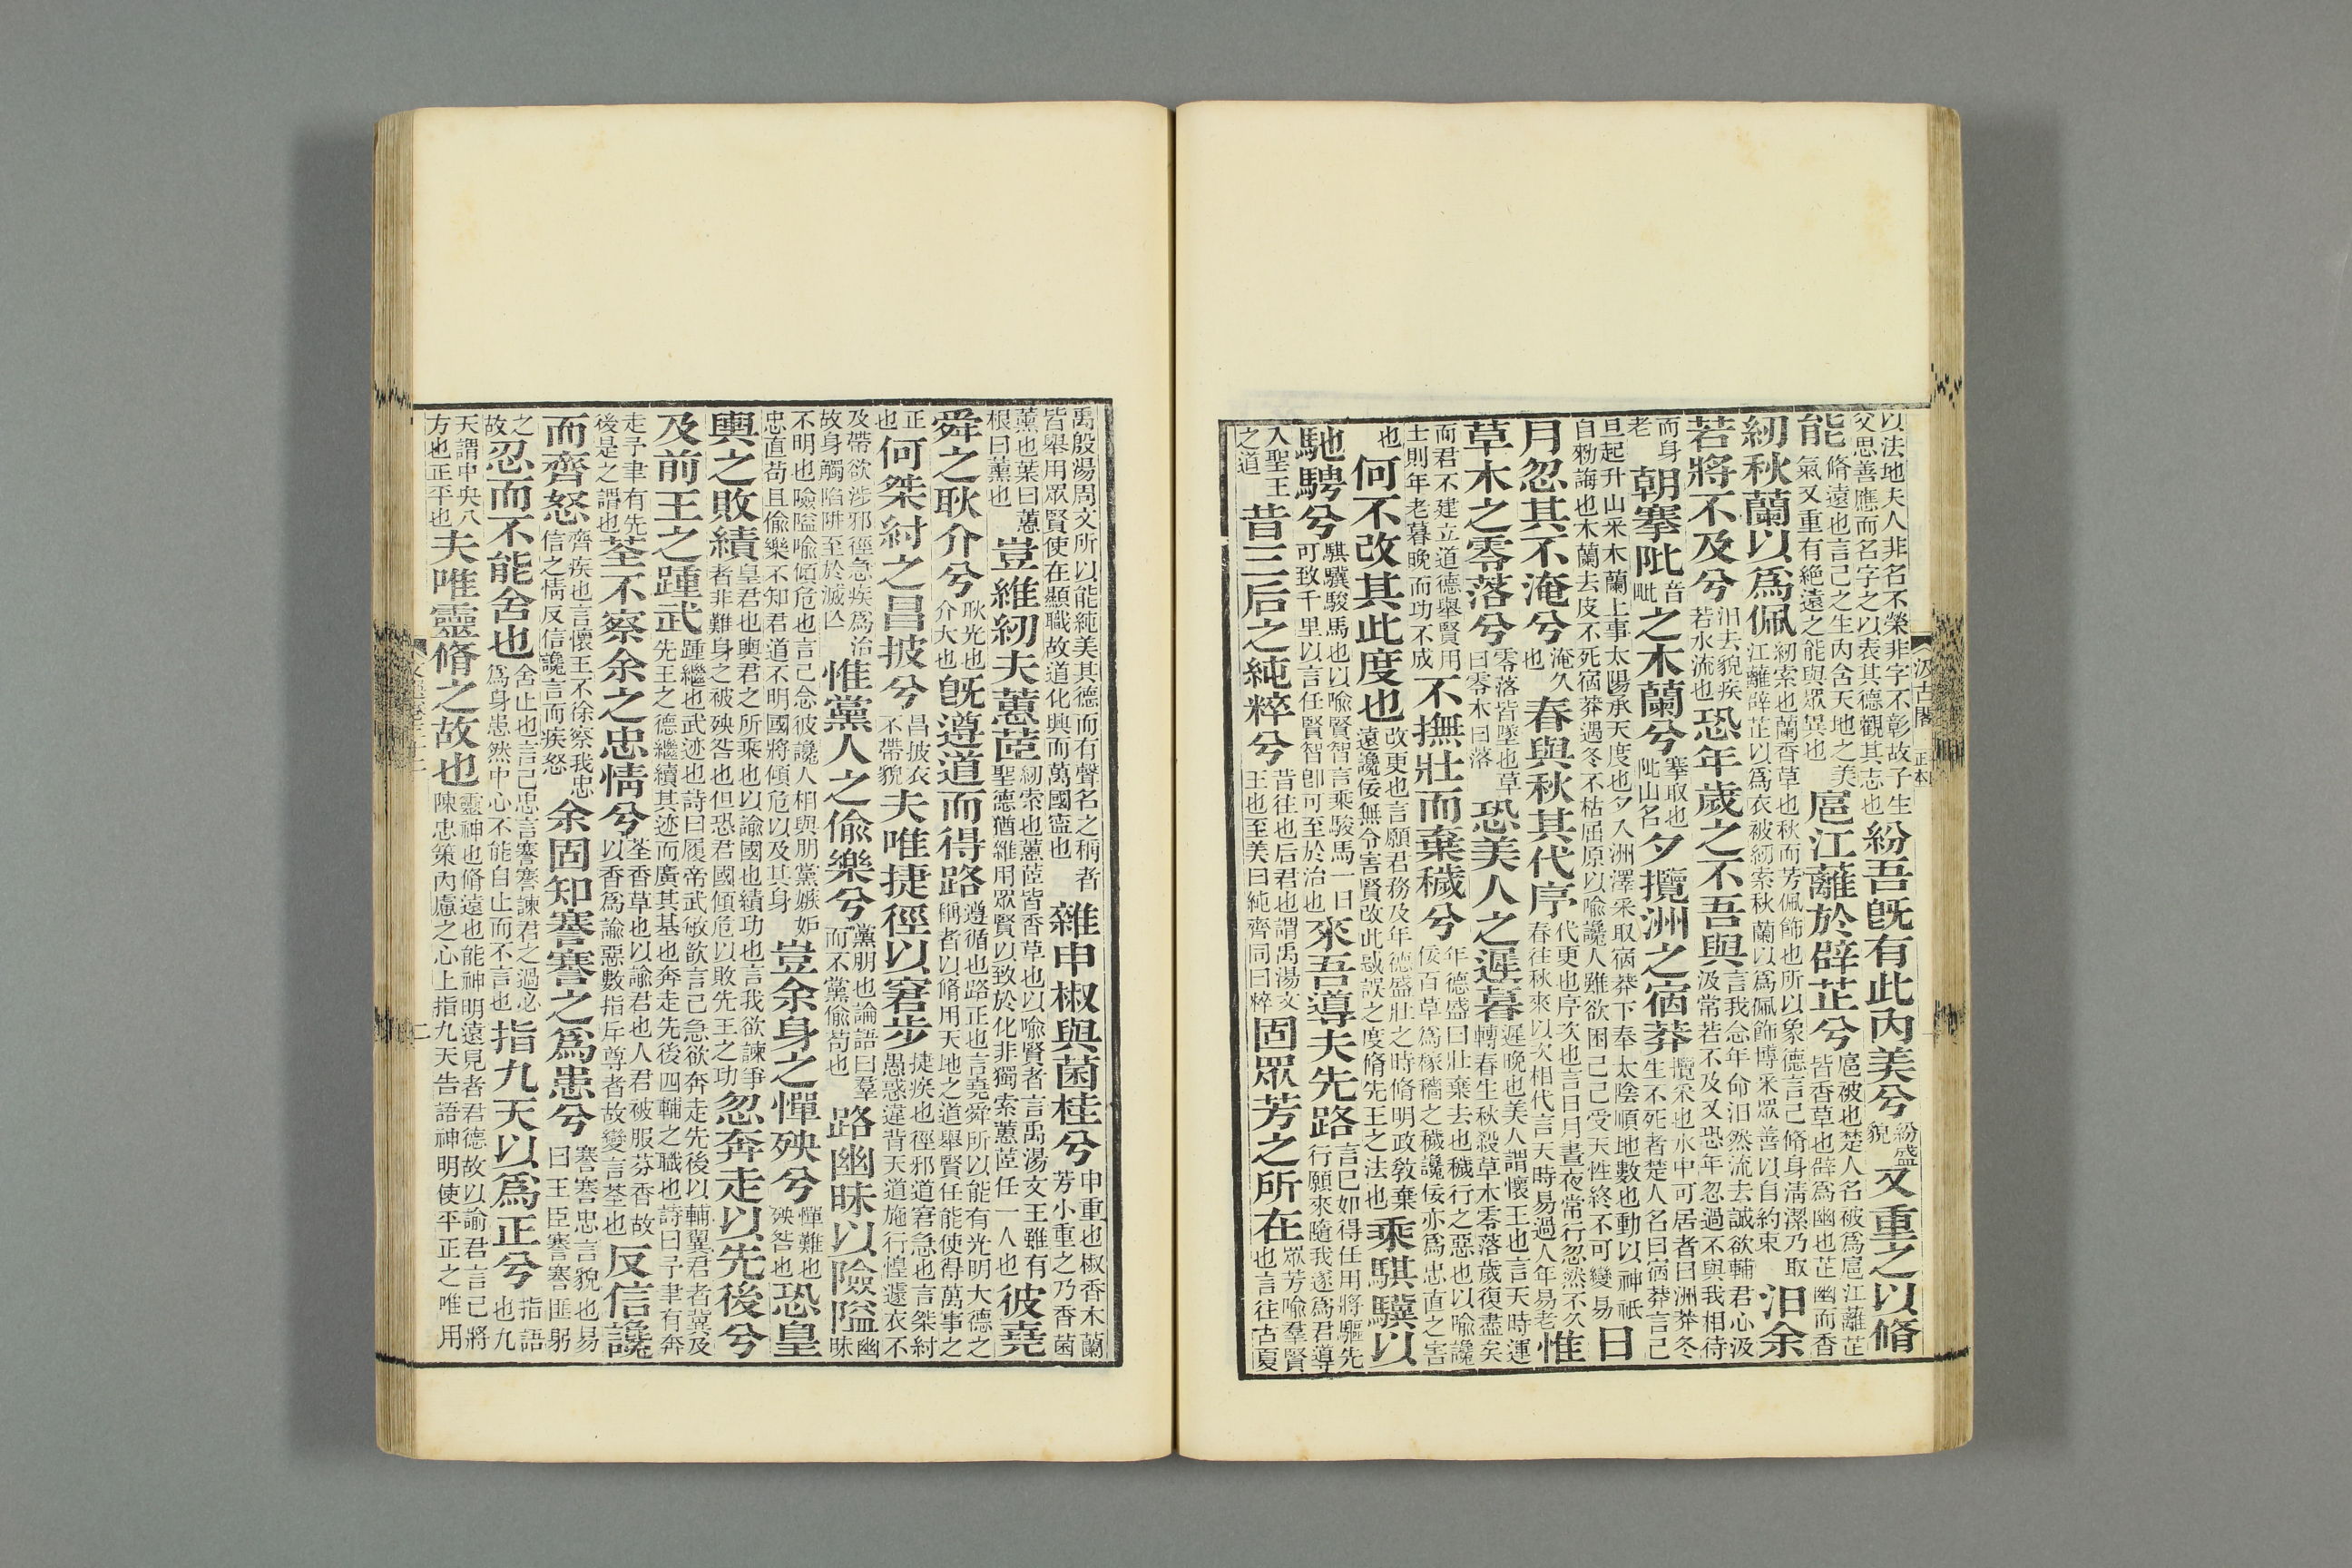 以法地夫人非名不榮非字不彰故子生父思善應而名字之以表其德觀其志也紛吾旣有此内美兮紛盛貌又重之以脩
能脩遠也言己之生内含天地之美氣又重有絕遠之能與眾異也扈江蘺於辟芷兮扈被也楚人名被爲扈江蘺芷皆香草也辟爲幽也芷幽而香
紉秋蘭以爲佩紉索也蘭香草也秋而芳佩飾也所以象德言己脩身清潔乃取江蘺辟芷以爲衣被紉索秋蘭以爲佩飾博采眾善以自約束汩余
若將不及兮汩去貌疾若水流也恐年歲之不吾與言我念年命汩然流去誠欲輔君心汲汲常若不及又恐年忽過不與我相待
而身老朝搴阰音毗之木蘭兮搴取也阰山名夕攬洲之宿莽攬采也水中可居者曰洲莽冬生不死者楚人名曰宿莽言己
旦起升山采木蘭上事太陽承天度也夕入洲澤采取宿莽下奉太陰順地數也動以神祇自勑誨也木蘭去皮不死宿莽遇冬不枯屈原以喻讒人雖欲困己己受天性終不可變易日
月忽其不淹兮淹久也春與秋其代序代更也序次也言日月晝夜常行忽然不久春往秋來以次相代言天時易過人年易老惟
草木之零落兮零落皆墜也草曰零木曰落恐美人之遲暮遲晚也美人謂懷王也言天時運轉春生秋殺草木零落歲復盡矣
而君不建立道德舉賢用士則年老暮晚而功不成不撫壯而棄穢兮年德盛曰壯棄去也穢行之惡也以喻讒佞百草爲稼穡之穢讒佞亦爲忠直之害
也何不改其此度也改更也言願君務及年德盛壯之時脩明政敎棄遠讒佞無令害賢改此惑誤之度脩先王之法也乘騏驥以
馳騁兮騏驥駿馬也以喻賢智言乘駿馬一日可致千里以言任賢智卽可至於治也來吾導夫先路言己如得任用將驅先行願來隨我遂爲君導
入聖王之道昔三后之純粹兮昔往也后君也謂禹湯文王也至美曰純齊同曰粹固眾芳之所在眾芳喻羣賢也言往古夏
汲古閣
禹殷湯周文所以能純美其德而有聲名之稱者皆舉用眾賢使在顯職故道化興而萬國寧也雜申椒與菌桂兮申重也椒香木蘭芳小重之乃香菌
薰也葉曰蕙根曰薰也豈維紉夫蕙茝紉索也蕙茝皆香草也以喻賢者言禹湯文王雖有聖德猶維用眾賢以致於化非獨索蕙茝任一人也彼堯
舜之耿介兮耿光也介大也旣遵道而得路遵循也路正也言堯舜所以能有光明大德之稱者以脩用天地之道舉賢任能使得萬事之
正也何桀紂之昌披兮昌披衣不帶貌夫唯捷徑以窘步捷疾也徑邪道窘急也言桀紂愚惑違背天道施行惶遽衣不
及帶欲涉邪徑急疾爲治故身觸陷阱至於滅亾惟黨人之偷樂兮黨朋也論語曰羣而不黨偷苟也路幽昧以險隘幽昧
不明也險隘喻傾危也言己念彼讒人相與朋黨嫉妬忠直苟且偷樂不知君道不明國將傾危以及其身豈余身之憚殃兮憚難也殃咎也恐皇
輿之敗績皇君也輿君之所乘也以諭國也績功也言我欲諫爭者非難身之被殃咎也但恐君國傾危以敗先王之功忽奔走以先後兮
及前王之踵武踵繼也武迹也詩曰履帝武敏歆言己急欲奔走先後以輔翼君者冀及先王之德繼續其迹而廣其基也奔走先後四輔之職也詩曰予聿有奔
走予聿有先後是之謂也荃不察余之忠情兮荃香草也以諭君也人君被服芬香故以香爲諭惡數指斥尊者故變言荃也反信讒
而齊怒齊疾也言懷王不徐察我忠信之情反信讒言而疾怒余固知謇謇之爲患兮謇謇忠言貌也易曰王臣謇謇匪躬
之故忍而不能舍也舍止也言己忠言謇謇諫君之過必爲身患然中心不能自止而不言也指九天以爲正兮指語也九
天謂中央八方也正平也夫唯靈脩之故也靈神也脩遠也能神明遠見者君德故以諭君言己將陳忠策内慮之心上指九天告語神明使平正之唯用
二